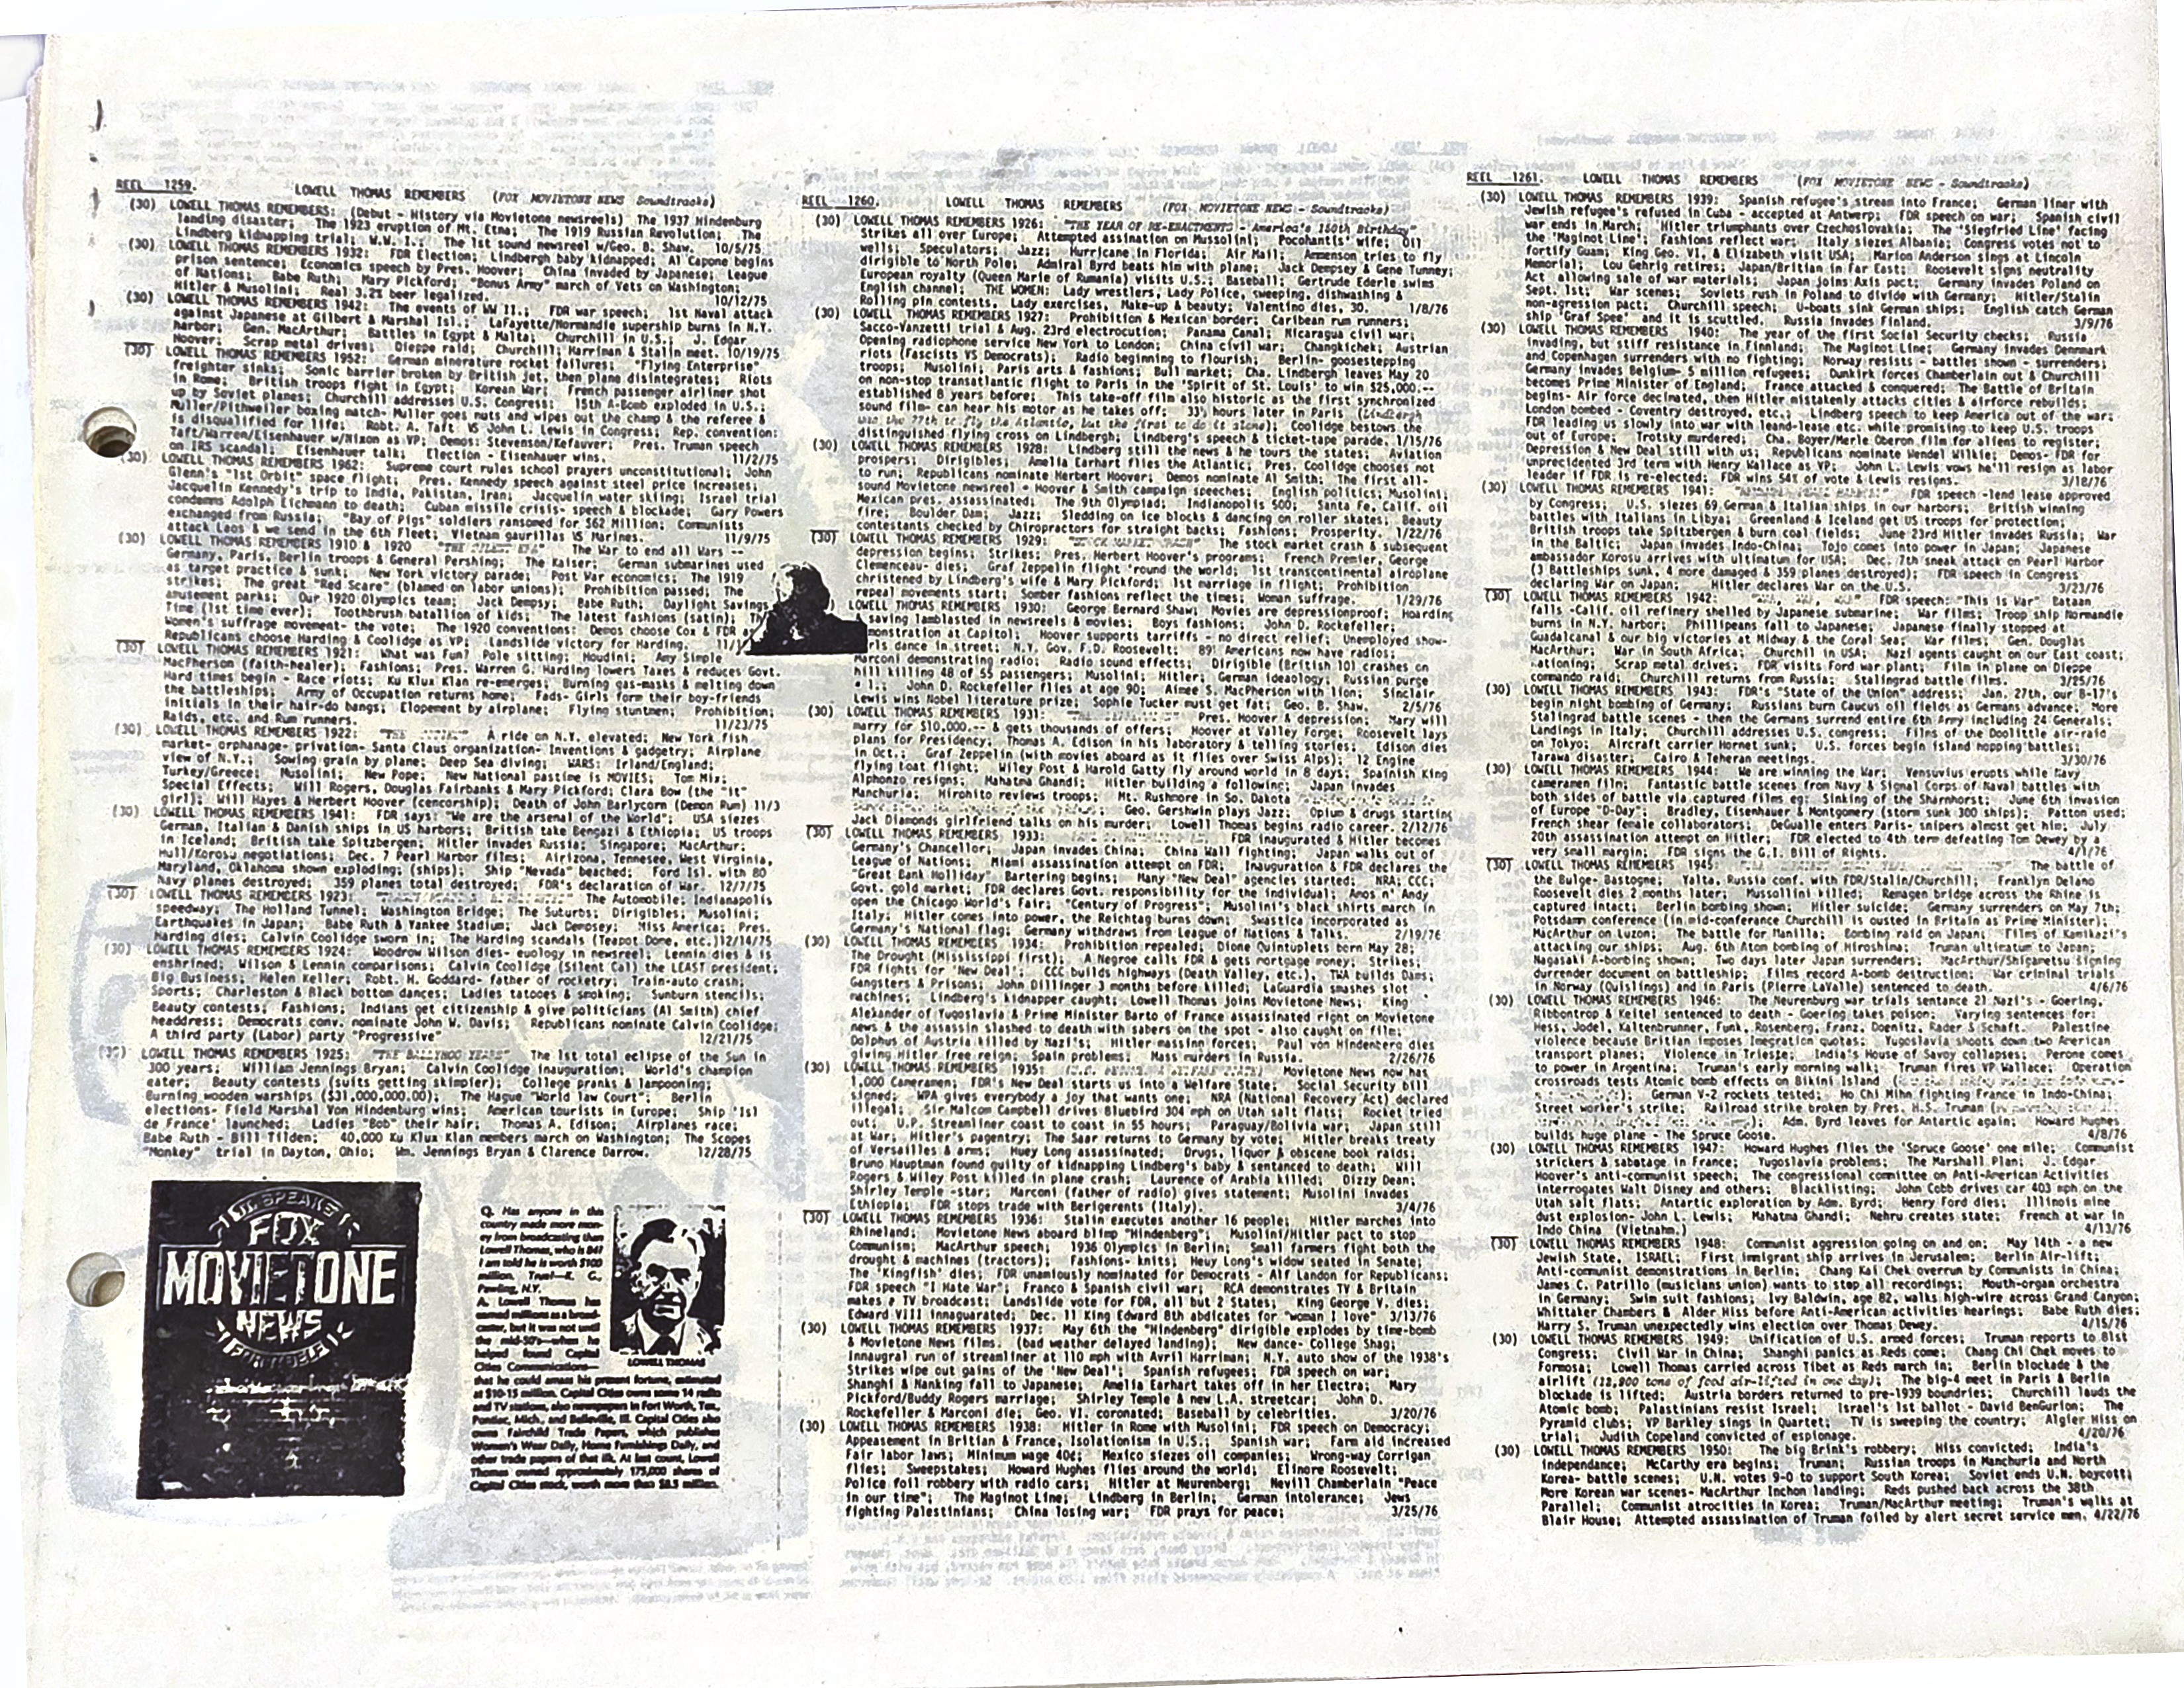 REEL 1259. LOWELL THOMAS REMEMBERS (FOX MOVIETONE NEWS Soundtracks)
(30) LOWELL THOMAS REMEMBERS: (Debut - History via Movietone newsreels) The 1937 Hindenburg
landing disaster; The 1923 eruption of Mt. Etna; The 1919 Russian Revolution; The
Lindberg kidnapping trial; W.W. I.; The 1st sound newsreel w/Geo. B. Shaw. 10/5/75
(30) LOWELL THOMAS REMEMBERS 1932: FDR Election; Lindbergh baby kidnapped; Al Capone begins
prison sentence; Economics speech by Pres. Hoover; China invaded by Japanese; League
of Nations; Babe Ruth; Mary Pickford; "Bonus Army" march of Vets on Washington;
Hitler & Musolini; Real 3.2% beer legalized. 10/12/75
(30) LOWELL THOMAS REMEMBERS 1942: The events of WW II.; FDR war speech; 1st Naval attack
against Japanese at Gilbert & Marshal Isl.; LaFayette/Normandie supership burns in N.Y.
harbor; Gen. MacArthur; Battles in Egypt & Malta; Churchill in U.S.; J. Edgar
Hoover; Scrap metal drives; Dieppe raid; Churchill; Harriman & Stalin meet. 10/19/75
(30) LOWELL THOMAS REMEMBERS 1952: German minerature rocket failures; "Flying Enterprise"
freighter sinks; Sonic barrier broken by British jet, then plane disintegrates; Riots
in Rome; British troops fight in Egypt; Korean War; French passenger airliner shot
up by Soviet planes; Churchill addresses U.S. Congress; 15th A-Bomb exploded in U.S.;
Muller/Pithweiler boxing match- Muller goes nuts and wipes out the champ & the referee &
is disqualified for life; Robt. A. Taft VS John L. Lewis in Congress; Rep. convention:
Taft/Warren/Eisenhower w/Nixon as VP; Demos: Stevenson/Kefauver; Pres. Truman speech
on IRS scandal; Eisenhower talk; Election - Eisenhower wins. 11/2/75
(30) LOWELL THOMAS REMEMBERS 1962: Supreme court rules school prayers unconstitutional; John
Glenn's "1st Orbit" space flight; Pres. Kennedy speech against steel price increases;
Jacquelin Kennedy's trip to India, Pakistan, Iran; Jacquelin water skiing; Israel trial
condemns Adolph Eichmann to death; Cuban missile crisis- speech & blockade; Gary Powers
exchanged from Russia; "Bay of Pigs" soldiers ransomed for $62 Million; Communists
attack Laos & we send in the 6th Fleet; Vietnam gaurillas VS Marines. 11/9/75
(30) LOWELL THOMAS REMEMBERS 1910 & 1920 The War to end all Wars --
Germany, Paris, Berlin troops & General Pershing; The Kaiser; German submarines used
as target practice & sunk; New York victory parade; Post War economics; The 1919
strikes; The great "Red Scare" (blamed on labor unions); Prohibition passed; The
amusement parks; Our 1920 Olympics team; Jack Dempsy; Babe Ruth; Daylight Savings
Time (1st time ever); Toothbrush batallion of kids; The latest fashions (satin); Th
Women's suffrage movement- the vote; The 1920 conventions: Demos choose Cox & FDR a
Republicans choose Harding & Coolidge as VP; Landslide victory for Harding. 11/1
(30) LOWELL THOMAS REMEMBERS 1921: What was Fun? Pole sitting; Houdini; Amy Simple
MacPherson (faith-healer); Fashions; Pres. Warren G. Harding lowers Taxes & reduces Govt.
Hard times begin - Race riots; Ku Klux Klan re-emerges; Burning gas-masks & melting down
the battleships; Army of Occupation returns home; Fads- Girls form their boy-friends
initials in their hair-do bangs; Elopement by airplane; Flying stuntmen; Prohibition;
Raids, etc. and Rum runners. 11/23/75
(30) LOWELL THOMAS REMEMBERS 1922: A ride on N.Y. elevated; New York fish
market- orphanage- privation- Santa Claus organization- Inventions & gadgetry; Airplane
view of N.Y.; Sowing grain by plane; Deep Sea diving; WARS: Irland/England;
Turkey/Greece; Musolini; New Pope; New National pastime is MOVIES; Tom Mix;
Special Effects; Will Rogers, Douglas Fairbanks & Mary Pickford; Clara Bow (the "it"
girl); Will Hayes & Herbert Hoover (cencorship); Death of John Barlycorn (Demon Rum) 11/3
(30) LOWELL THOMAS REMEMBERS 1941: FDR says: "We are the arsenal of the World"; USA siezes
German, Italian & Danish ships in US harbors; British take Bengazi & Ethiopia; US troops
in Iceland; British take Spitzbergen; Hitler invades Russia; Singapore; MacArthur;
Hull/Korosu negotiations; Dec. 7 Pearl Harbor films; Airizona, Tennesee, West Virginia,
Maryland, Oklahoma shown exploding; (ships); Ship "Nevada" beached; Ford Isl. with 80
Navy planes destroyed; 359 planes total destroyed; FDR's declaration of War. 12/7/75
(30) LOWELL THOMAS REMEMBERS 1923: The Automobile; Indianapolis
speedway; The Holland Tunnel; Washington Bridge; The Suburbs; Dirigibles; Musolini;
Earthquakes in Japan; Babe Ruth & Yankee Stadium; Jack Dempsey; Miss America; Pres.
Harding dies; Calvin Coolidge sworn in; The Harding scandals (Teapot Dome, etc.)12/14/75
(30) LOWELL THOMAS REMEMBERS 1924: Woodrow Wilson dies- euology in newsreel; Lennin dies & is
enshrined; Wilson & Lennin comparisons; Calvin Coolidge (Silent Cal) the LEAST president;
Big Business; Helen Keller; Robt. H. Goddard- father of rocketry; Train-auto crash;
Sports; Charleston & Black bottom dances; Ladies tatooes & smoking; Sunburn stencils;
Beauty contests; Fashions; Indians get citizenship & give politicians (Al Smith) chief
headdress; Democrats conv. nominate John W. Davis; Republicans nominate Calvin Coolidge;
A third party (Labor) party "Progressive" 12/21/75
LOWELL THOMAS REMEMBERS 1925: "THE BALLYHOO YEARS" The 1st total eclipse of the Sun in
300 years; William Jennings Bryan; Calvin Coolidge inauguration; World's champion
eater; Beauty contests (suits getting skimpier); College pranks & lampooning;
Burning wooden warships ($31,000,000.00); The Hague "World law Court"; Berlin
elections- Field Marshal Von Hindenburg wins; American tourists in Europe; Ship 'Isl
de France' launched; Ladies "Bob" their hair; Thomas A. Edison; Airplanes race;
Babe Ruth - Bill Tilden; 40,000 Ku Klux Klan members march on Washington; The Scopes
"Monkey" trial in Dayton, Ohio; Wm. Jennings Bryan & Clarence Darrow. 12/28/75
IT SPEAKS
FOX
MOVIETONE
NEWS
FOR ITSELF
Q. Has anyone in this
country made more mon-
ey from broadcasting than
Lowell Thomas, who is 84?
I am told he is worth $100
million. True?—K. C.,
Pawling, N.Y.
A. Lowell Thomas has
earned millions as a broad-
caster, but it was not until
the mid-50's—when he
helped found Capital
Cities Communications—
that he could amass his present fortune, estimated
at $10-15 million. Capital Cities owns some 14 radio
and TV stations, also newspapers in Fort Worth, Tex.,
Pontiac, Mich., and Belleville, Ill. Capital Cities also
owns Fairchild Trade Papers, which publishes
Women's Wear Daily, Home Furnishings Daily, and
other trade papers of that ilk. At last count, Lowell
Thomas owned approximately 175,000 shares of
Capital Cities stock, worth more than $8.5 million.
LOWELL THOMAS
REEL 1260. LOWELL THOMAS REMEMBERS (FOX MOVIETONE NEWS - Soundtracks)
(30) LOWELL THOMAS REMEMBERS 1926: "THE YEAR OF RE-ENACTMENTS - America's 150th Birthday"
Strikes all over Europe; Attempted assination on Mussolini; Pocohantis' wife; Oil
wells; Speculators; Jazz; Hurricane in Florida; Air Mail; Ammenson tries to fly
dirigible to North Pole; Admiral Byrd beats him with plane; Jack Dempsey & Gene Tunney;
European royalty (Queen Marie of Rumania) visits U.S.; Baseball; Gertrude Ederle swims
English channel; THE WOMEN: Lady wrestlers, Lady Police, sweeping, dishwashing &
Rolling pin contests, Lady exercises, Make-up & beauty; Valentino dies, 30. 1/8/76
(30) LOWELL THOMAS REMEMBERS 1927: Prohibition & Mexican border; Caribean rum runners;
Sacco-Vanzetti trial & Aug. 23rd electrocution; Panama Canal; Nicaragua civil war;
Opening radiophone service New York to London; China civil war; Changkichek; Austrian
riots (Fascists VS Democrats); Radio beginning to flourish; Berlin- goosestepping
troops; Musolini; Paris arts & fashions; Bull market; Cha. Lindbergh leaves May 20
on non-stop transatlantic flight to Paris in the 'Spirit of St. Louis' to win $25,000.--
established 8 years before; This take-off film also historic as the first synchronized
sound film- can hear his motor as he takes off; 33½ hours later in Paris (Lindbergh
was the 77th to fly the Atlantic, but the first to do it alone); Coolidge bestows the
distinguished flying cross on Lindbergh; Lindberg's speech & ticket-tape parade. 1/15/76
(30) LOWELL THOMAS REMEMBERS 1928: Lindberg still the news & he tours the states; Aviation
prospers; Dirigibles; Amelia Earhart flies the Atlantic; Pres. Coolidge chooses not
to run; Republicans nominate Herbert Hoover; Demos nominate Al Smith; The first all-
sound Movietone newsreel - Hoover & Smith campaign speeches; English politics; Musolini;
Mexican pres. assassinated; The 9th Olympiad; Indianapolis 500; Santa Fe, Calif. oil
fire; Boulder Dam; Jazz; Sledding on ice blocks & dancing on roller skates; Beauty
contestants checked by Chiropractors for straight backs; Fashions; Prosperity. 1/22/76
(30) LOWELL THOMAS REMEMBERS 1929: The stock market crash & subsequent
depression begins; Strikes; Pres. Herbert Hoover's programs; French Premier, George
Clemenceau- dies; Graf Zeppelin flight 'round the world; 1st transcontinental airoplane
christened by Lindberg's wife & Mary Pickford; 1st marriage in flight; Prohibition
repeal movements start; Somber fashions reflect the times; Woman suffrage. 1/29/76
LOWELL THOMAS REMEMBERS 1930: George Bernard Shaw; Movies are depressionproof; Hoarding
saving lamblasted in newsreels & movies; Boys fashions; John D. Rockefeller;
monstration at Capitol; Hoover supports tarriffs - no direct relief; Unemployed show-
rls dance in street; N.Y. Gov. F.D. Roosevelt; 89! Americans now have radios;
Marconi demonstrating radio; Radio sound effects; Dirigible (British 10) crashes on
hill killing 48 of 55 passengers; Musolini; Hitler; German ideology; Russian purge
John D. Rockefeller flies at age 90; Aimee S. MacPherson with lion; Sinclair
Lewis wins Nobel literature prize; Sophie Tucker must get fat; Geo. B. Shaw. 2/5/76
(30) LOWELL THOMAS REMEMBERS 1931: Pres. Hoover & depression; Mary will
marry for $10,000.-- & gets thousands of offers; Hoover at Valley Forge; Roosevelt lays
plans for Presidency; Thomas A. Edison in his laboratory & telling stories; Edison dies
in Oct.; Graf Zeppelin (with movies aboard as it flies over Swiss Alps); 12 Engine
flying boat flight; Wiley Post & Harold Gatty fly around world in 8 days; Spainish King
Alphonzo resigns; Mahatma Ghandi; Hitler building a following; Japan invades
Manchuria; Hirohito reviews troops; Mt. Rushmore in So. Dakota
Geo. Gershwin plays Jazz; Opium & drugs starting
Jack Diamonds girlfriend talks on his murder; Lowell Thomas begins radio career. 2/12/76
(30) LOWELL THOMAS REMEMBERS 1933: FDR inaugurated & Hitler becomes
Germany's Chancellor; Japan invades China; China Wall fighting; Japan walks out of
League of Nations; Miami assassination attempt on FDR; Inauguration & FDR declares the
"Great Bank Holliday" Bartering begins; Many "New Deal" agencies started; NRA; CCC;
Govt. gold market; FDR declares Govt. responsibility for the individual; Amos n' Andy
open the Chicago World's Fair; "Century of Progress"; Musolini's black shirts march in
Italy; Hitler comes into power, the Reichtag burns down; Swastica incorporated in
Germany's National flag; Germany withdraws from League of Nations & Talks. 2/19/76
(30) LOWELL THOMAS REMEMBERS 1934: Prohibition repealed; Dione Quintuplets born May 28;
The Drought (Mississippi first); A Negroe calls FDR & gets mortgage money; Strikes;
FDR fights for 'New Deal'; CCC builds highways (Death Valley, etc.), TWA builds Dams;
Gangsters & Prisons; John Dillinger 3 months before killed; LaGuardia smashes slot
machines; Lindberg's kidnapper caught; Lowell Thomas joins Movietone News; King
Alexander of Yugoslavia & Prime Minister Barto of France assassinated right on Movietone
news & the assassin slashed to death with sabers on the spot - also caught on film;
Dolphus of Austria killed by Nazi's; Hitler massing forces; Paul von Hindenberg dies
giving Hitler free reign; Spain problems; Mass murders in Russia. 2/26/76
(30) LOWELL THOMAS REMEMBERS 1935: Movietone News now has
1,000 Cameramen; FDR's New Deal starts us into a Welfare State; Social Security bill
signed; WPA gives everybody a joy that wants one; NRA (National Recovery Act) declared
illegal; Sir Malcom Campbell drives Bluebird 304 mph on Utah salt flats; Rocket tried
out; U.P. Streamliner coast to coast in 55 hours; Paraguay/Bolivia war; Japan still
at War; Hitler's pagentry; The Saar returns to Germany by vote; Hitler breaks treaty
of Versailles & arms; Huey Long assassinated; Drugs, liquor & obscene book raids;
Bruno Hauptman found guilty of kidnapping Lindberg's baby & sentanced to death; Will
Rogers & Wiley Post killed in plane crash; Laurence of Arabia killed; Dizzy Dean;
Shirley Temple -star; Marconi (father of radio) gives statement; Musolini invades
Ethiopia; FDR stops trade with Berigerents (Italy). 3/4/76
(30) LOWELL THOMAS REMEMBERS 1936: Stalin executes another 16 people; Hitler marches into
Rhineland; Movietone News aboard blimp "Hindenberg"; Musolini/Hitler pact to stop
Communism; MacArthur speech; 1936 Olympics in Berlin; Small farmers fight both the
drought & machines (tractors); Fashions- knits; Heuy Long's widow seated in Senate;
The 'Kingfish' dies; FDR unamiously nominated for Democrats - Alf Landon for Republicans;
FDR speech "I Hate War"; Franco & Spanish civil war; RCA demonstrates TV & Britain
makes a TV broadcast; Landslide vote for FDR, all but 2 States; King George V, dies;
Edward VIII innaguarated; Dec. 11 King Edward 8th abdicates for "woman I love" 3/13/76
(30) LOWELL THOMAS REMEMBERS 1937: May 6th the "Hindenberg" dirigible explodes by time-bomb
& Movietone News films. (bad weather delayed landing); New dance- College Shag;
Innaugral run of streamliner at 110 mph with Avril Harriman; N.Y. auto show of the 1938's
Strikes wipe out gains of the 'New Deal'; Spanish refugees; FDR speech on war;
Shanghi & Nanking fall to Japanese; Amelia Earhart takes off in her Electra; Mary
Pickford/Buddy Rogers marriage; Shirley Temple & new L.A. streetcar; John D.
Rockefeller & Marconi die; Geo. VI. coronated; Baseball by celebrities. 3/20/76
(30) LOWELL THOMAS REMEMBERS 1938: Hitler in Rome with Musolini; FDR speech on Democracy;
Appeasement in Britian & France, Isolationism in U.S.; Spanish war; Farm aid increased
Fair labor laws; Minimum wage 40¢; Mexico siezes oil companies; Wrong-way Corrigan
flies; Sweepstakes; Howard Hughes flies around the world; Elinore Roosevelt;
Police foil robbery with radio cars; Hitler at Neurenberg; Nevill Chamberlain "Peace
in our time"; The Maginot Line; Lindberg in Berlin; German intolerance; Jews
fighting Palestinians; China losing war; FDR prays for peace; 3/25/76
REEL 1261. LOWELL THOMAS REMEMBERS (FOX MOVIETONE NEWS - Soundtracks)
(30) LOWELL THOMAS REMEMBERS 1939: Spanish refugee's stream into France; German liner with
Jewish refugee's refused in Cuba - accepted at Antwerp; FDR speech on war; Spanish civil
war ends in March; 'Hitler triumphants over Czechoslovakia; The 'Siegfried Line' facing
the 'Maginot Line'; Fashions reflect war; Italy siezes Albania; Congress votes not to
fortify Guam; King Geo. VI, & Elizabeth visit USA; Marion Anderson sings at Lincoln
Memorial; Lou Gehrig retires; Japan/Britian in far East; Roosevelt signs neutrality
Act allowing sale of war materials; Japan joins Axis pact; Germany invades Poland on
Sept. 1st; War scenes; Soviets rush in Poland to divide with Germany; Hitler/Stalin
non-agression pact; Churchill speech; U-boats sink German ships; English catch German
ship 'Graf Spee' and it is scuttled. Russia invades Finland. 3/9/76
(30) LOWELL THOMAS REMEMBERS 1940: The year of the first Social Security checks; Russia
invading, but stiff resistance in Finnland; The Maginot Line; Germany invades Dennmark
and Copenhagen surrenders with no fighting; Norway resists - battles shown - surrenders;
Germany invades Belgium- 5 million refugees; Dunkirk forces Chamberlain out & Churchill
becomes Prime Minister of England; France attacked & conquered; The Battle of Britain
begins- Air force decimated, then Hitler mistakenly attacks cities & airforce rebuilds;
London bombed - Coventry destroyed, etc.; Lindberg speech to keep America out of the war;
FDR leading us slowly into war with leand-lease etc. while promising to keep U.S. troops
out of Europe; Trotsky murdered; Cha. Boyer/Merle Oberon film for aliens to register;
Depression & New Deal still with us; Republicans nominate Wendel Wilkie; Demos- FDR for
unprecidented 3rd term with Henry Wallace as VP; John L. Lewis vows he'll resign as labor
leader if FDR is re-elected; FDR wins 54% of vote & Lewis resigns. 3/18/76
(30) LOWELL THOMAS REMEMBERS 1941: FDR speech -lend lease approved
by Congress; U.S. siezes 69 German & Italian ships in our harbors; British winning
battles with Italians in Libya; Greenland & Iceland get US troops for protection;
British troops take Spitzbergen & burn coal fields; June 23rd Hitler invades Russia; War
in the Baltic; Japan invades Indo-China; Tojo comes into power in Japan; Japanese
ambassador Korosu arrives with ultimatum for USA; Dec. 7th sneak attack on Pearl Harbor
(3 Battleships sunk, 4 more damaged & 359 planes destroyed); FDR speech in Congress
declaring War on Japan; Hitler declares War on the U.S. 3/23/76
(30) LOWELL THOMAS REMEMBERS 1942: FDR speech: "This is War" Bataan
falls -Calif. oil refinery shelled by Japanese submarine; War films; Troop ship Normandie
burns in N.Y. harbor; Phillipeans fall to Japanese; Japanese finally stopped at
Guadalcanal & our big victories at Midway & the Coral Sea; War films; Gen. Douglas
MacArthur; War in South Africa; Churchil in USA; Nazi agents caught on our East coast;
Rationing; Scrap metal drives; FDR visits Ford war plant; Film in plane on Dieppe
commando raid; Churchill returns from Russia; Stalingrad battle films. 3/25/76
(30) LOWELL THOMAS REMEMBERS 1943: FDR's "State of the Union" address; Jan. 27th, our B-17's
begin night bombing of Germany; Russians burn Caucus oil fields as Germans advance; More
Stalingrad battle scenes - then the Germans surrend entire 6th Army including 24 Generals;
Landings in Italy; Churchill addresses U.S. congress; Films of the Doolittle air-raid
on Tokyo; Aircraft carrier Hornet sunk; U.S. forces begin island hopping battles;
Tarawa disaster; Cairo & Teheran meetings. 3/30/76
(30) LOWELL THOMAS REMEMBERS 1944: We are winning the War; Vensuvius erupts while Navy
cameramen film; Fantastic battle scenes from Navy & Signal Corps of Naval battles with
both sides of battle via captured films eg: Sinking of the Sharnhorst; June 6th invasion
of Europe "D-Day"; Bradley, Eisenhower & Montgomery (storm sunk 300 ships); Patton used;
French shear female collaborators; DeGualle enters Paris- snipers almost get him; July
20th assassination attempt on Hitler; FDR elected to 4th term defeating Tom Dewey by a
very small margin; FDR signs the G.I. Bill of Rights. 4/1/76
(30) LOWELL THOMAS REMEMBERS 1945: The battle of
the Bulge- Bastogne; Yalta, Russia conf. with FDR/Stalin/Churchill; Franklyn Delano
Roosevelt dies 2 months later; Mussolini killed; Remagen bridge across the Rhine is
captured intact; Berlin bombing shown; Hitler suicide; Germany surrenders on May 7th;
Potsdamn conference (in mid-conference Churchill is ousted in Britain as Prime Minister);
MacArthur on Luzon; The battle for Manilla; Bombing raid on Japan; Films of Kamikazi's
attacking our ships; Aug. 6th Atom bombing of Hiroshima; Truman ultimatum to Japan;
Nagasaki A-bombing shown; Two days later Japan surrenders; MacArthur/Shigametsu signing
durrender document on battleship; Films record A-bomb destruction; War criminal trials
in Norway (Quislings) and in Paris (Pierre LaValle) sentenced to death. 4/6/76
(30) LOWELL THOMAS REMEMBERS 1946: The Neurenburg war trials sentance 21 Nazi's - Goering,
Ribbontrop & Keitel sentanced to death - Goering takes poison; Varying sentances for:
Hess, Jodel, Kaltenbrunner, Funk, Rosenberg, Franz, Doenitz, Rader & Schaft. Palestine
violence because Britian imposes Imegration quotas; Yugoslavia shoots down two American
transport planes; Violence in Trieste; India's House of Savoy collapses; Perone comes
to power in Argentina; Truman's early morning walk; Truman fires VP Wallace; Operation
crossroads tests Atomic bomb effects on Bikini Island
German V-2 rockets tested; Ho Chi Mihn fighting France in Indo-China;
Street worker's strike; Railroad strike broken by Pres. H.S. Truman
Adm. Byrd leaves for Antartic again; Howard Hughes
builds huge plane - The Spruce Goose. 4/8/76
(30) LOWELL THOMAS REMEMBERS 1947: Howard Hughes flies the 'Spruce Goose' one mile; Communist
strickers & sabatage in France; Yugoslavia problems; The Marshall Plan; J. Edgar
Hoover's anti-communist speech; The congressional committee on Anti-American Activities
interrogates Walt Disney and others; Blacklisting; John Cobb drives car 403 mph on the
Utah salt flats; Antarctic exploration by Adm. Byrd; Henry Ford dies; Illinois mine
dust explosion- John L. Lewis; Mahatma Ghandi; Nehru creates state; French at war in
Indo China (Vietnahm.) 4/13/76
(30) LOWELL THOMAS REMEMBERS 1948: Communist aggression going on and on; May 14th - a new
Jewish State, ISRAEL; First immigrant ship arrives in Jerusalem; Berlin Air-lift;
Anti-communist demonstrations in Berlin; Chang Kai Chek overrun by Communists in China;
James C. Patrillo (musicians union) wants to stop all recordings; Mouth-organ orchestra
in Germany; Swim suit fashions; Ivy Baldwin, age 82, walks high-wire across Grand Canyon;
Whittaker Chambers & Alder Hiss before Anti-American activities hearings; Babe Ruth dies;
Harry S. Truman unexpectedly wins election over Thomas Dewey. 4/15/76
(30) LOWELL THOMAS REMEMBERS 1949: Unification of U.S. armed forces; Truman reports to 81st
Congress; Civil War in China; Shanghi panics as Reds come; Chang Chi Chek moves to
Formosa; Lowell Thomas carried across Tibet as Reds march in; Berlin blockade & the
airlift (12,900 tons of food air-lifted in one day); The big-4 meet in Paris & Berlin
blockade is lifted; Austria borders returned to pre-1939 boundries; Churchill lauds the
Atomic bomb; Palestinians resist Israel; Israel's 1st ballot - David BenGurion; The
Pyramid clubs; VP Barkley sings in Quartet; TV is sweeping the country; Algier Hiss on
trial; Judith Copeland convicted of espionage. 4/20/76
(30) LOWELL THOMAS REMEMBERS 1950: The big Brink's robbery; Hiss convicted; India's
independance; McCarthy era begins; Truman; Russian troops in Manchuria and North
Korea- battle scenes; U.N. votes 9-0 to support South Korea; Soviet ends U.N. boycott;
More Korean war scenes- MacArthur Inchon landing; Reds pushed back across the 38th
Parallel; Communist atrocities in Korea; Truman/MacArthur meeting; Truman's walks at
Blair House; Attempted assassination of Truman foiled by alert secret service men. 4/22/76